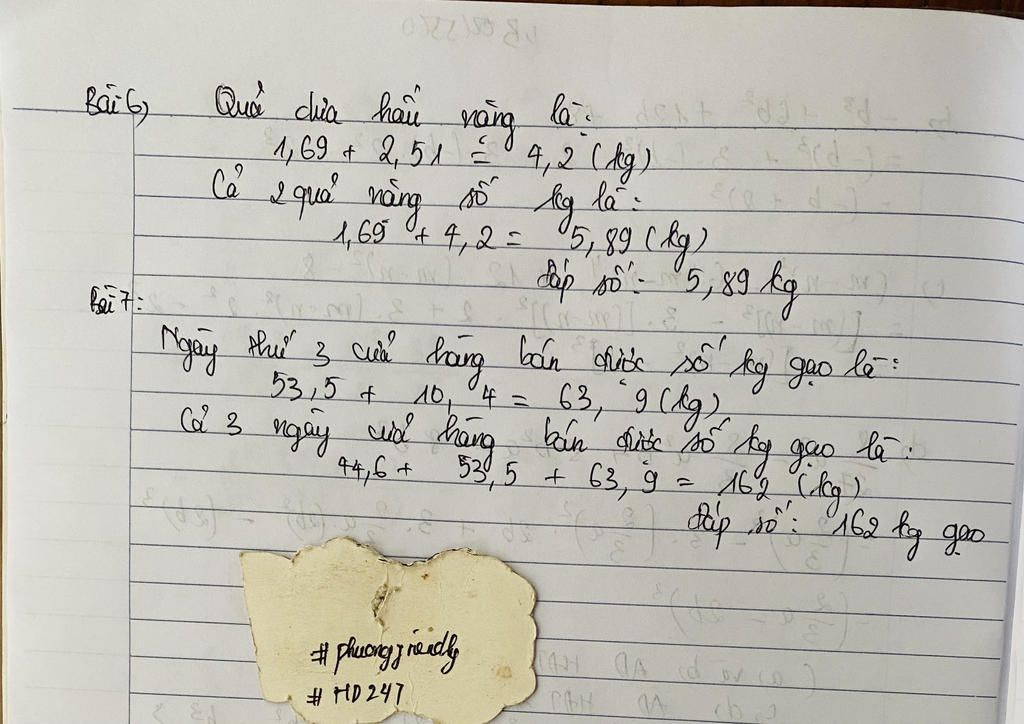 Bài 6) Quả dưa hấu nặng là:
1,69 + 2,51 = 4,2 (kg)
Cả 2 quả nặng số kg là:
1,69 + 4,2 = 5,89 (kg)
Đáp số: 5,89 kg
Bài 7:
Ngày thứ 3 cửa hàng bán được số kg gạo là:
53,5 + 10,4 = 63,9 (kg)
Cả 3 ngày cửa hàng bán được số kg gạo là:
44,6 + 53,5 + 63,9 = 162 (kg)
Đáp số: 162 kg gạo
# HD247